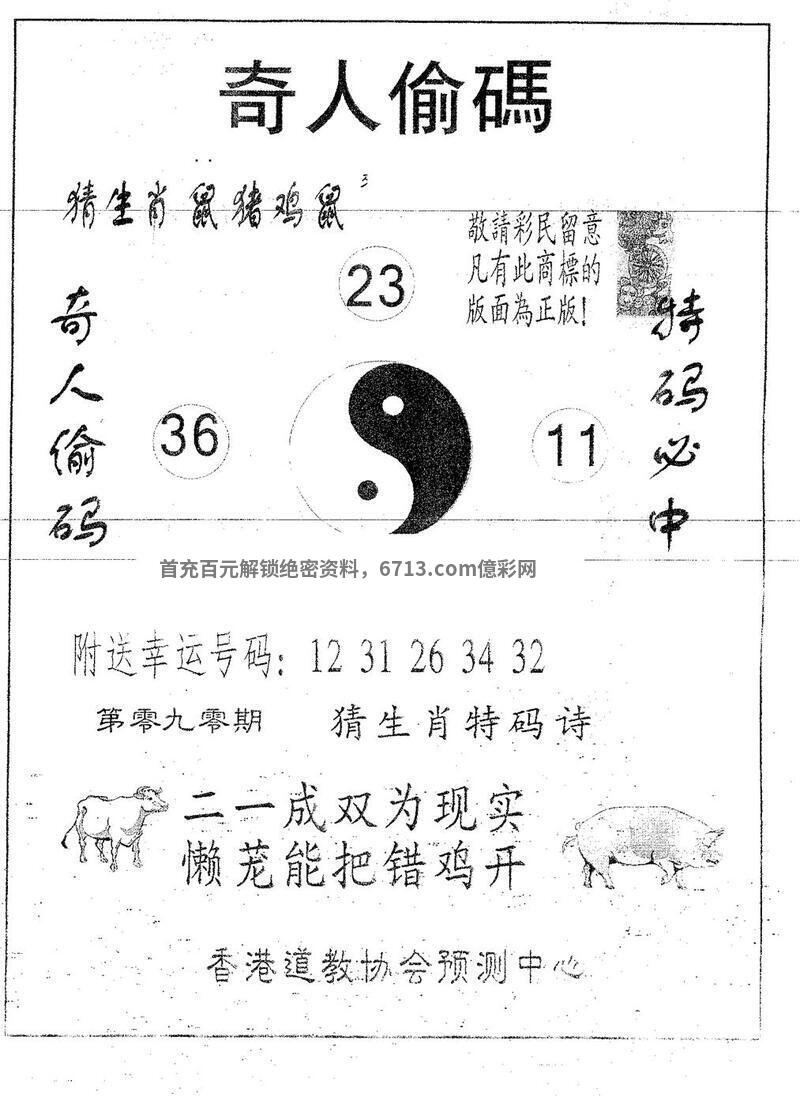 奇人偷碼
猜生肖鼠猪鸡鼠
敬請彩民留意
凡有此商標的
版面為正版!
23
奇人偷码
36
11
特码必中
首充百元解锁绝密资料，6713.com億彩网
附送幸运号码: 12 31 26 34 32
第零九零期 猜生肖特码诗
二一成双为现实
懒茏能把错鸡开
香港道教协会预测中心